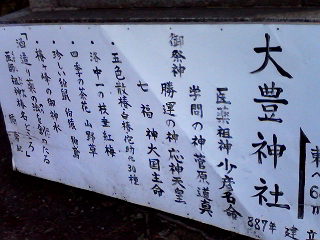 大豊神社
887年 建立
東へ
御祭神
医薬祖神 少彦名命
学問の神 菅原道真
勝運の神 応神天皇
七福神 大国主命
・五色散椿 白椿 他 30種
・洛中一の枝垂紅梅
・四季の茶花 山野草
・珍しい狛鼠 狛猿 狛鳶
・椿ヶ峰の御神水